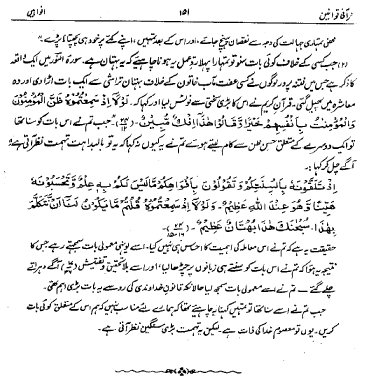 قرآنی قوانین ۱۵۱ افواہیں
محض تمہاری جہالت کی وجہ سے نقصان پہنچ جائے، اور اس کے بعد تمہیں، اپنے کئے پر خود ہی پچھتانا پڑے۔"
(۲) جب کسی کے خلاف کوئی بات سنو تو تمہارا پہلا ردِ عمل یہ ہونا چاہئے کہ یہ بہتان ہے۔ سورۃ النور میں ایک واقعہ
کا ذکر ہے جس میں فتنہ پرور لوگوں نے کسی عفت مآب خاتون کے خلاف بہتان تراشی سے ایک بات اڑا دی اور وہ
معاشرہ میں پھیل گئی۔ قرآن کریم نے اس کا بڑی سختی سے نوٹس لیا اور کہا کہ۔ لَوْلَا إِذْ سَمِعْتُمُوهُ ظَنَّ الْمُؤْمِنُونَ
وَالْمُؤْمِنَاتُ بِأَنْفُسِهِمْ خَيْرًا وَّقَالُوا هَٰذَا إِفْكٌ مُّبِينٌ (۲۴/۱۲)۔ "جب تم نے اس بات کو سنا تھا
تو ایک دوسرے کے متعلق حسنِ ظن سے کام لیتے ہوئے تم نے یہ کیوں نہ کہا کہ یہ تو بالبداہت تہمت نظر آتی ہے۔"
آگے چل کر کہا:۔
إِذْ تَلَقَّوْنَهُ بِأَلْسِنَتِكُمْ وَتَقُولُونَ بِأَفْوَاهِكُمْ مَّا لَيْسَ لَكُمْ بِهِ عِلْمٌ وَّتَحْسَبُونَهُ
هَيِّنًا وَّهُوَ عِنْدَ اللّٰهِ عَظِيمٌ۔ وَلَوْلَا إِذْ سَمِعْتُمُوهُ قُلْتُمْ مَّا يَكُونُ لَنَا أَنْ نَّتَكَلَّمَ
بِهَٰذَا سُبْحَٰنَكَ هَٰذَا بُهْتَانٌ عَظِيمٌ (۲۴/۱۵-۱۶)
حقیقت یہ ہے کہ تم نے اس معاملہ کی اہمیت کا احساس ہی نہیں کیا۔ اسے یونہی معمولی بات سمجھتے رہے جس کا
نتیجہ یہ ہوا کہ تم نے اس بات کو سنتے ہی زبانوں پر چڑھا لیا، اور اسے بلا تحقیق و تفتیش آگے دہراتے
چلے گئے۔ تم نے اسے معمولی بات سمجھ لیا حالانکہ قانونِ خداوندی کی رو سے یہ بات بڑی اہم تھی۔
جب تم نے اسے سنا تھا تو تمہیں کہنا یہ چاہئے تھا کہ ہمارے لئے مناسب نہیں کہ ہم اس کے متعلق کوئی بات
کریں۔ یوں تو معصوم خدا کی ذات ہے لیکن یہ تہمت بڑی سنگین نظر آتی ہے۔